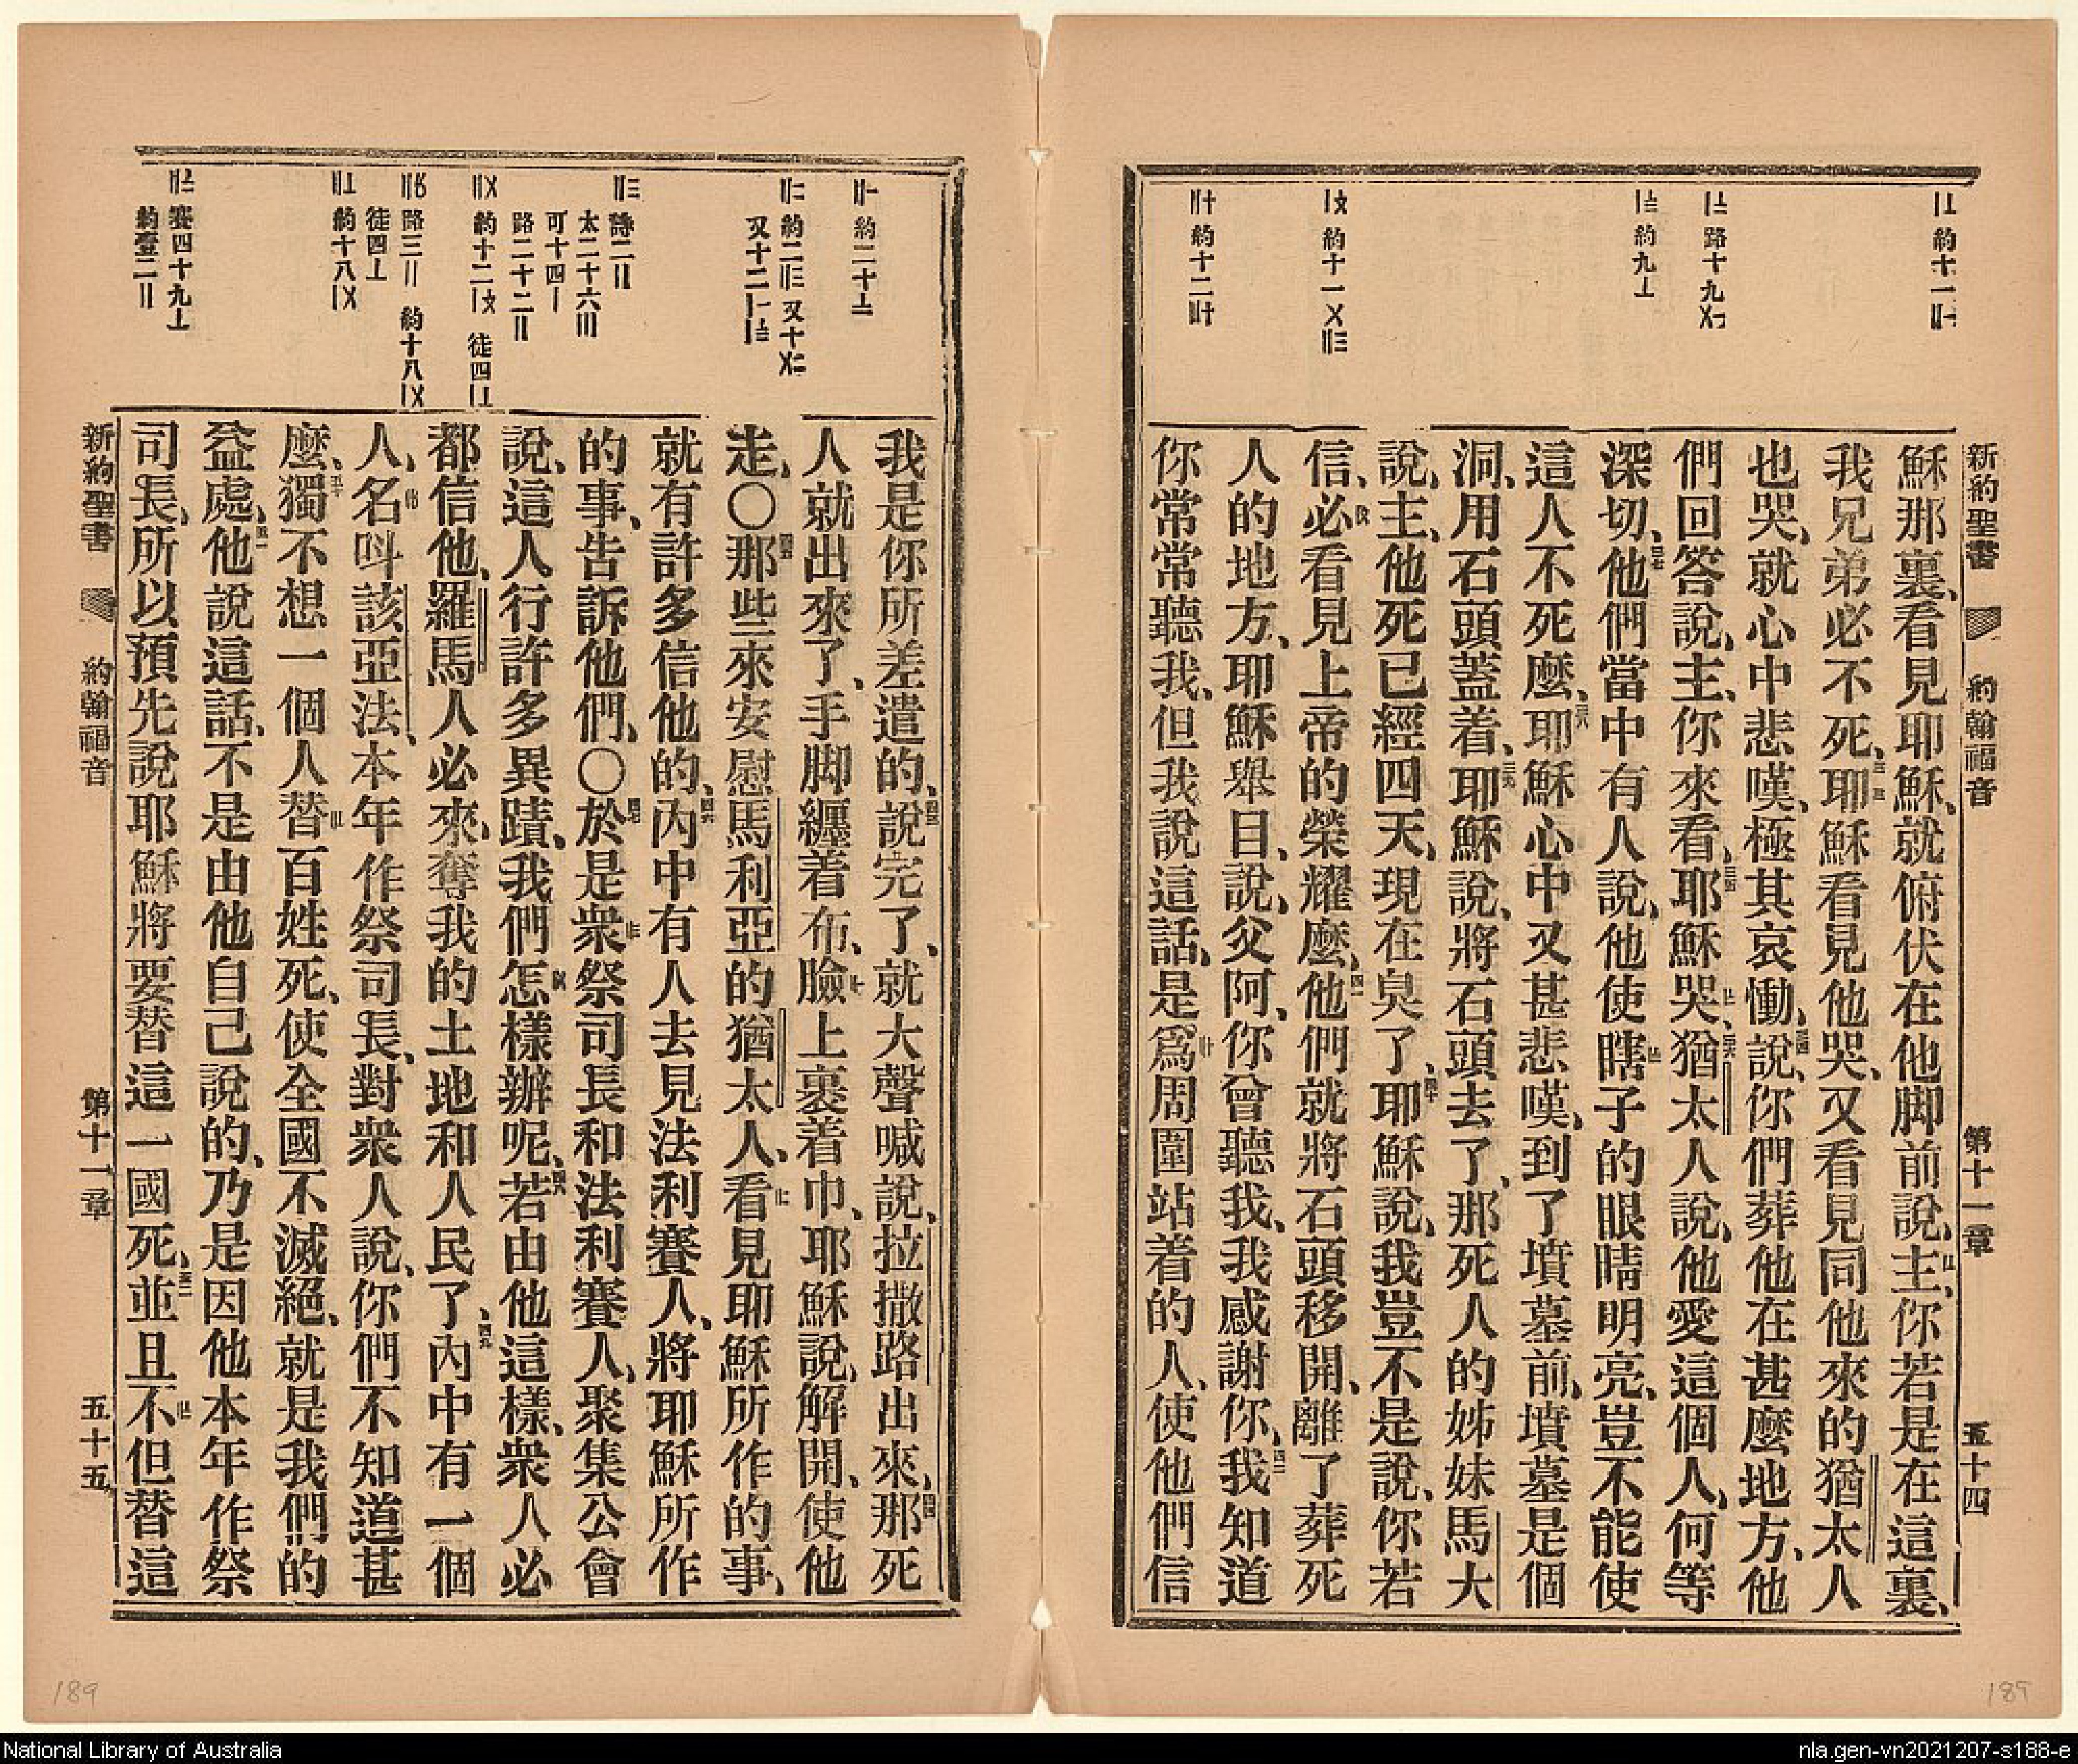 新約聖書 約翰福音 第十一章 五十四
〡〦 約十一〢〡
〡〧 路十九〤〡
〡〨 約九〦
〡〩 約十一〤 〢〣
〢〸 約十二〣〸
穌那裏、看見耶穌、就俯伏在他脚前說、主、你若是在這裏、
我兄弟必不死、耶穌看見他哭、又看見同他來的猶太人
也哭、就心中悲嘆、極其哀慟、說、你們葬他在甚麼地方、他
們回答說、主、你來看、耶穌哭、猶太人說、他愛這個人、何等
深切、他們當中有人說、他使瞎子的眼睛明亮、豈不能使
這人不死麼、耶穌心中又甚悲嘆、到了墳墓前、墳墓是個
洞、用石頭蓋着、耶穌說、將石頭去了、那死人的姊妹馬大
說、主、他死已經四天、現在臭了、耶穌說、我豈不是說、你若
信、必看見上帝的榮耀麼、他們就將石頭移開、離了葬死
人的地方、耶穌舉目、說、父阿、你曾聽我、我感謝你、我知道
你常常聽我、但我說這話、是爲周圍站着的人、使他們信
〢〡 約二十〧
〢〢 約二〢〣 又十〤〢
又十二〡〡 〡〨
〢〣 詩二〢
太二十六〣
可十四〡
路二十二〢
〢〤 約十二〡〩 徒四〡〦
〢〥 路三〢 約十八〡〤
徒四〦
〢〦 約十八〡〤
〢〧 賽四十九〦
約壹二〢
我是你所差遣的、說完了、就大聲喊說、拉撒路出來、那死
人就出來了、手脚纒着布、臉上裹着巾、耶穌說、解開、使他
走、〇那些來安慰馬利亞的猶太人、看見耶穌所作的事、
就有許多信他的、內中有人去見法利賽人、將耶穌所作
的事、告訴他們、〇於是衆祭司長和法利賽人、聚集公會
說、這人行許多異蹟、我們怎樣辦呢、若由他這樣、衆人必
都信他、羅馬人必來、奪我的土地和人民了、內中有一個
人、名呌該亞法、本年作祭司長、對衆人說、你們不知道甚
麼、獨不想一個人替百姓死、使全國不滅絕、就是我們的
益處、他說這話、不是由他自己說的、乃是因他本年作祭
司長、所以預先說耶穌將要替這一國死、並且不但替這
新約聖書 約翰福音 第十一章 五十五
189
189
National Library of Australia
nla.gen-vn2021207-s188-e